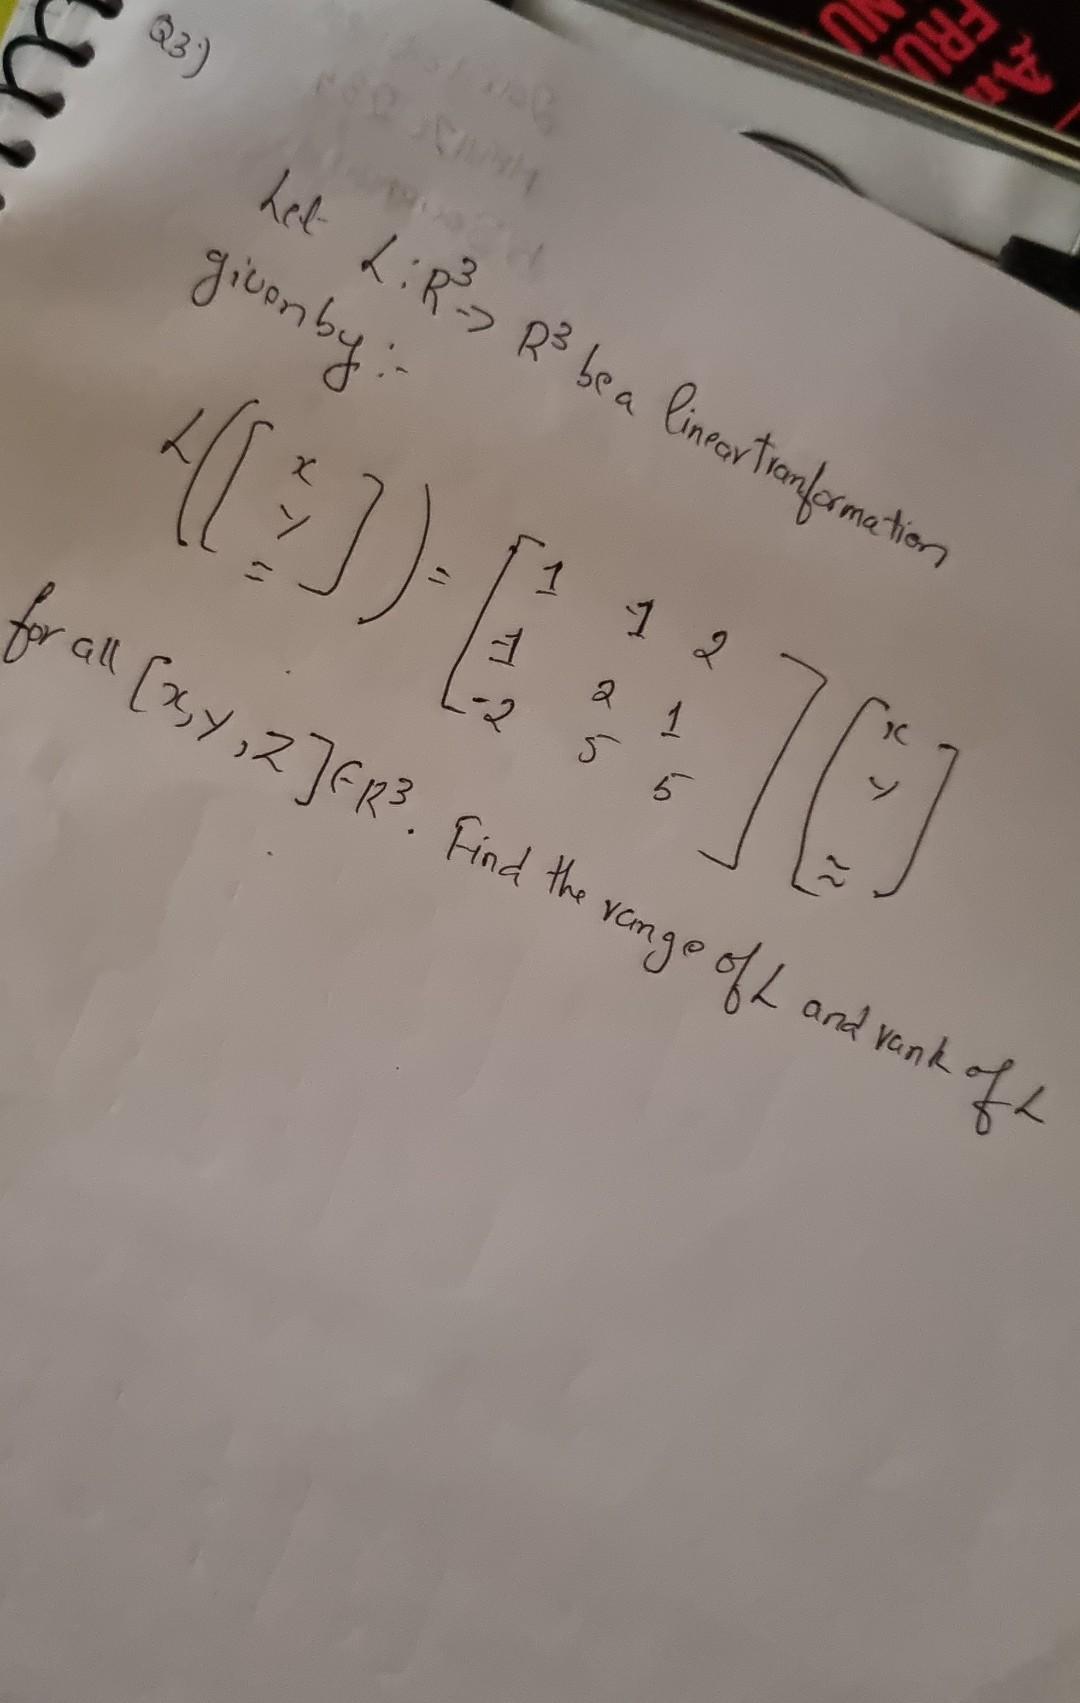 Q3:)
Let L:R³→ R³ be a linear tranformation
given by :-
L([x y z]) = [1 -1 2
-1 2 1
-2 5 5] [x y z]
for all [x,y,z]∈R³. Find the range of L and rank of L